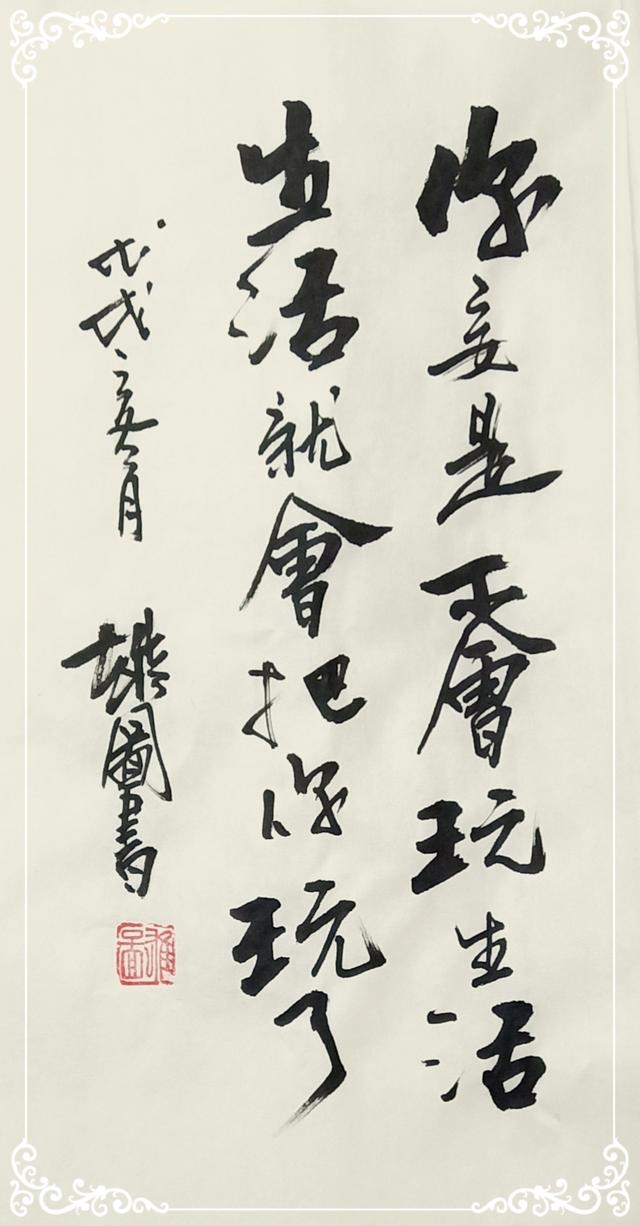 你要是不會玩生活
生活就會把你玩了
戊戌亥月 雄圖書
雄圖